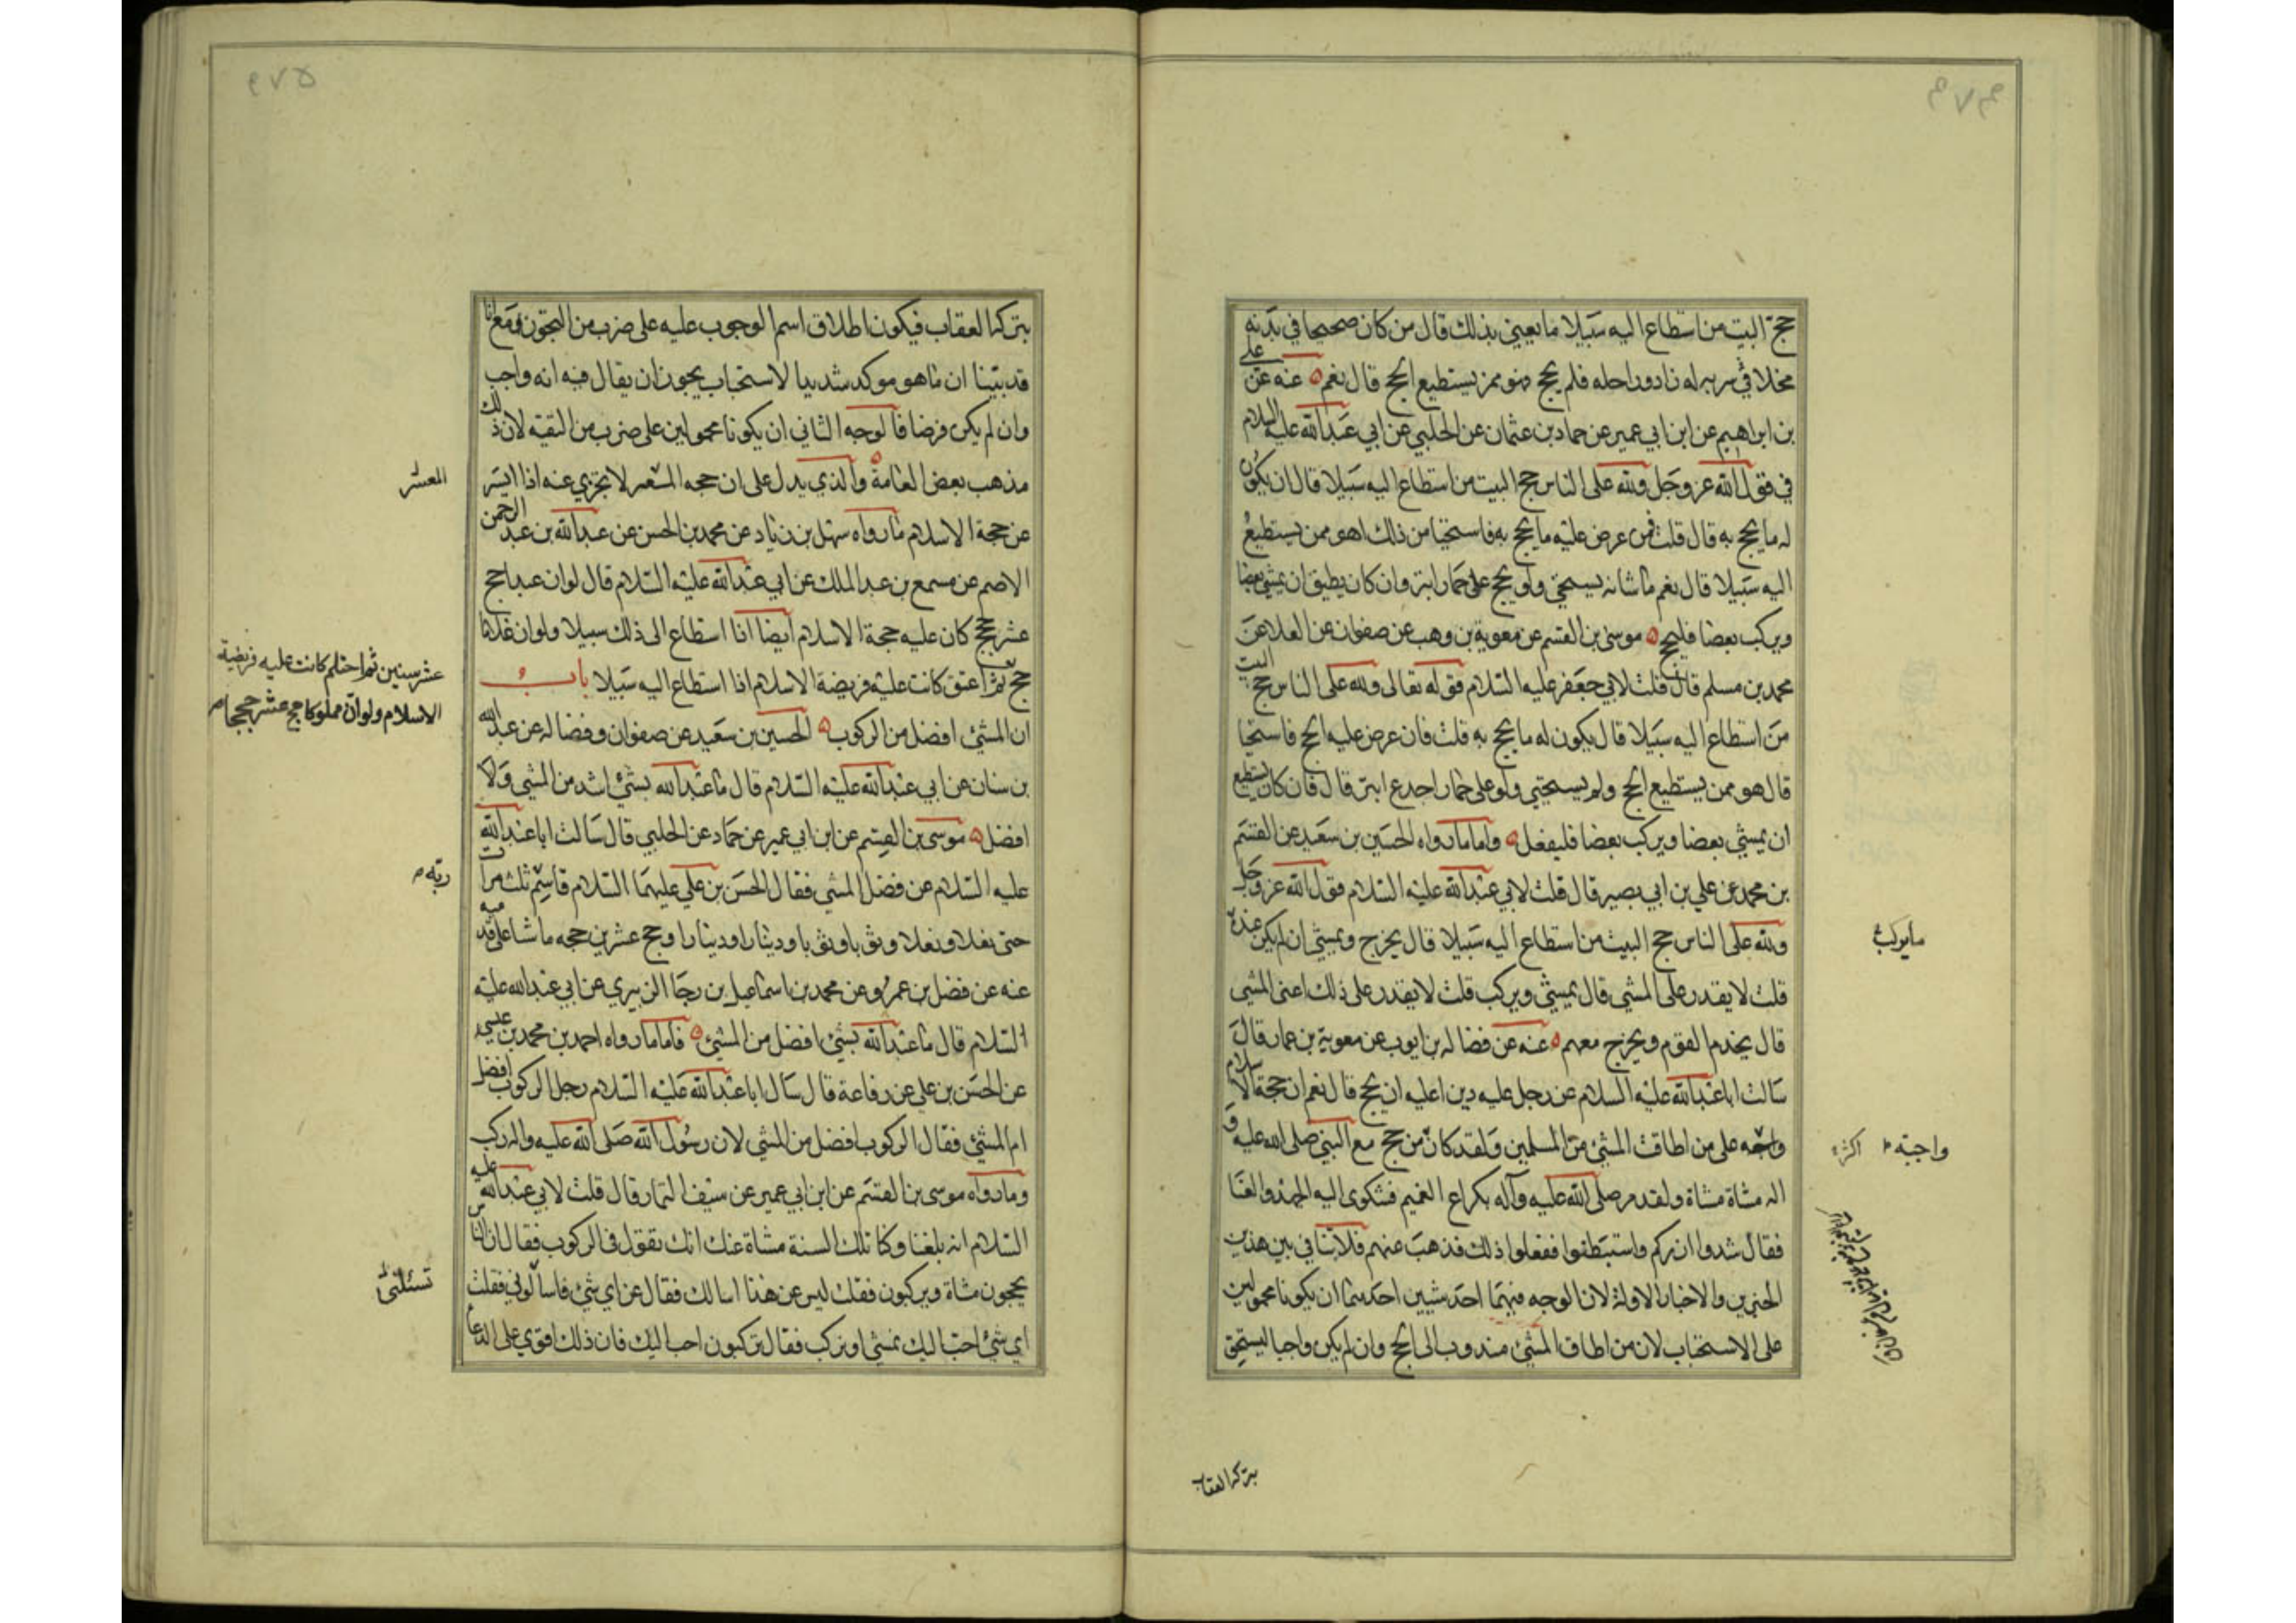 ٩٧٤
حج البيت من استطاع اليه سبيلا ما يعني بذلك قال من كان صحيحا في بدنه
مخلا في سربه له زاد وراحله فلم يحج فهو ممن يستطيع الحج قال نعم عنه عن علي
بن ابراهيم عن ابن ابي عمير عن حماد بن عثمان عن الحلبي عن ابي عبدالله عليه السلام
في قول الله عز وجل ولله على الناس حج البيت من استطاع اليه سبيلا قال ان يكون
له ما يحج به قال قلت فمن عرض عليه ما يحج به فاستحيا من ذلك اهو ممن يستطيع
اليه سبيلا قال نعم ما شانه يستحي ولو يحج على حمار ابتر وان كان يطيق ان يمشي بعضا
ويركب بعضا فليحج موسى بن القسم عن معوية بن وهب عن صفوان عن العلا عن
محمد بن مسلم قال قلت لابي جعفر عليه السلام قوله تعالى ولله على الناس حج البيت
من استطاع اليه سبيلا قال يكون له ما يحج به قلت فان عرض عليه الحج فاستحيا
قال هو ممن يستطيع الحج ولم يستحيي ولو على حمار اجدع ابتر قال فان كان يستطيع
ان يمشي بعضا ويركب بعضا فليفعل واما ما رواه الحسين بن سعيد عن القسم
بن محمد عن علي بن ابي بصير قال قلت لابي عبدالله عليه السلام قول الله عز وجل
ولله على الناس حج البيت من استطاع اليه سبيلا قال يخرج ويمشي ان لم يكن عنده
ما يركب
قلت لا يقدر على المشي قال يمشي ويركب قلت لا يقدر على ذلك اعنى المشي
قال يخدم القوم ويخرج معهم عنه عن فضاله بن ايوب عن معوية بن عمار قال
سالت ابا عبدالله عليه السلام عن رجل عليه دين اعليه ان يحج قال نعم ان حجة الاسلام
واجبه على من اطاق المشي من المسلمين ولقد كان من حج مع النبي صلى الله عليه و
واجبة اكثر
اله مشاة مشاة ولقد مر صلى الله عليه وآله بكراع الغميم فشكوى اليه الجهد والعنا
فقال شدوا ازركم واستبطنوا ففعلوا ذلك فذهب عنهم فلا تنافي بين هذين
الخبرين والاخبار الاولة لان الوجه فيهما احد شيين احدهما ان يكونا محمولين
على الاستحباب لان من اطاق المشي مندوب الى الحج وان لم يكن واجبا يستحق
بتركه العقاب
٩٧٥
بتركه العقاب فيكون اطلاق اسم الوجوب عليه على ضرب من التجوز ومع انا
قد بينا ان ما هو موكد شديد الاستحباب يجوز ان يقال فيه انه واجب
وان لم يكن فرضا فالوجه الثاني ان يكونا محمولين على ضرب من التقية لان ذلك
مذهب بعض العامة والذي يدل على ان حجه المعسر لا تجزي عنه اذا ايسر
المعسر
عن حجة الاسلام ما رواه سهل بن زياد عن محمد بن الحسن عن عبدالله بن عبد الرحمن
الاصم عن مسمع بن عبد الملك عن ابي عبدالله عليه السلام قال لو ان عبدا حج
عشر حجج كان عليه حجة الاسلام ايضا اذا استطاع الى ذلك سبيلا ولو ان غلاما
حج ثم اعتق كانت عليه فريضة الاسلام اذا استطاع اليه سبيلا باب
عشر سنين ثم احتلم كانت عليه فريضة
الاسلام ولو ان مملوكا حج عشر حجج
ان المشي افضل من الركوب الحسين بن سعيد عن صفوان وفضاله عن عبد الله
بن سنان عن ابي عبدالله عليه السلام قال ما عبدالله بشئ اشد من المشي ولا
افضل موسى بن القسم عن ابن ابي عمير عن حماد عن الحلبي قال سالت ابا عبدالله
عليه السلام عن فضل المشي فقال الحسن بن علي عليهما السلام قاسم ثلث مرات
ربه
حتى نعلا ونعلا وثوبا وثوبا ودينارا ودينارا وحج عشرين حجه ماشا على قدميه
عنه عن فضل بن عمرو عن محمد بن اسماعيل بن رجا الزبيري عن ابي عبدالله عليه
السلام قال ما عبدالله بشئ افضل من المشي فاما ما رواه احمد بن محمد بن عيسى
عن الحسن بن علي عن رفاعة قال سال ابا عبدالله عليه السلام رجل الركوب افضل
ام المشي فقال الركوب افضل من المشي لان رسول الله صلى الله عليه واله ركب
وما رواه موسى بن القسم عن ابن ابي عمير عن سيف التمار قال قلت لابي عبدالله عليه
السلام انه بلغنا وكنا تلك السنة مشاة عنك انك تقول في الركوب فقال ان الناس
يحجون مشاة ويركبون فقلت ليس عن هذا اسالك فقال عن اي شئ فاسالوني فقلت
تسئلني
اي شئ احب اليك نمشي او نركب فقال تركبون احب اليك فان ذلك اقوى على الدعا